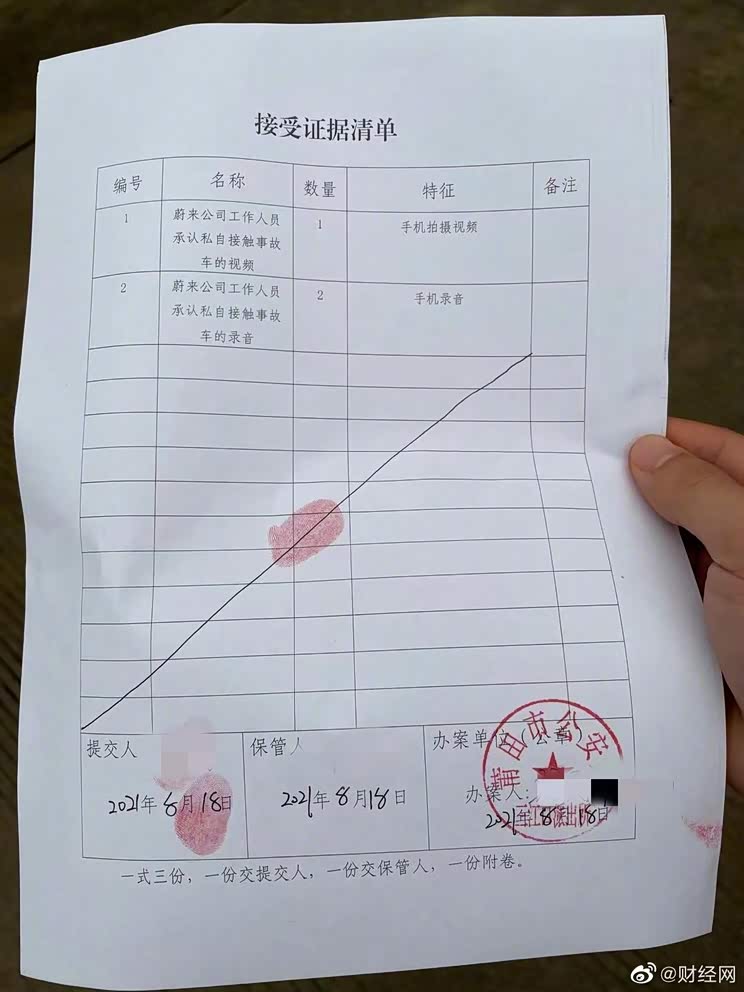 接受证据清单
编号 名称 数量 特征 备注
1 蔚来公司工作人员 1 手机拍摄视频
承认私自接触事故
车的视频
2 蔚来公司工作人员 2 手机录音
承认私自接触事故
车的录音
提交人 保管人 办案单位（公章）
莆田市公安
办案人：
2021年8月18日 2021年8月18日 2021年8月18日
一式三份，一份交提交人，一份交保管人，一份附卷。
@财经网